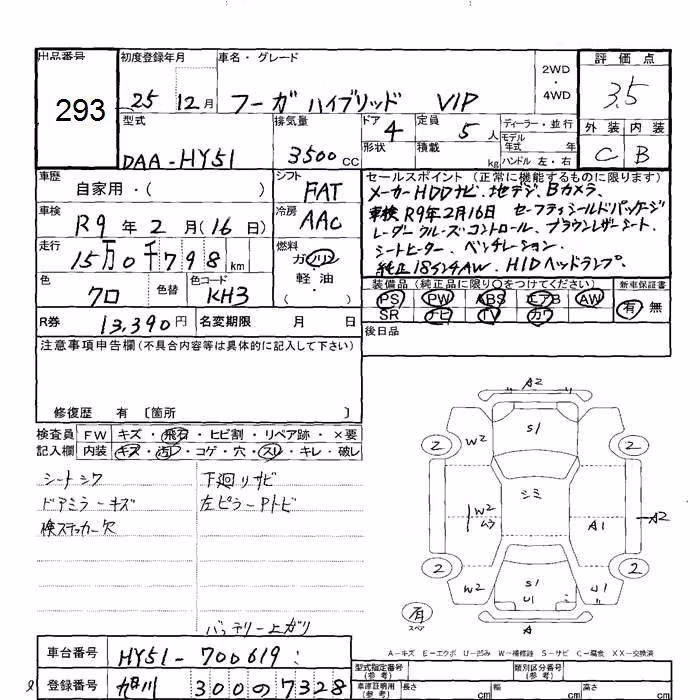 出品番号 初度登録年月 車名・グレード 2WD ・ 4WD 評価点
293 25 12月 フーガ ハイブリッド VIP 3.5
型式 排気量 ドア 4 定員 5人 ディーラー・並行 外装 内装
DAA-HY51 3500cc 形状 積載 kg モデル年式 年 ハンドル 左・右 C B
車歴 自家用・( ) シフト FAT セールスポイント (正常に機能するものに限ります)
車検 R9年2月(16日) 冷房 AAC メーカーHDDナビ、地デジ、Bカメラ、
車検R9年2月16日 セーフティシールドパッケージ
走行 15万0千798km 燃料 ガソリン・軽油 ( ) レーダークルーズコントロール、ブラウンレザーシート、
シートヒーター、ベンチレーション、
純正18インチAW、HIDヘッドランプ、
色 クロ 色替 色コード KH3 装備品 (純正品に限り○をつけてください) 新車保証書
PS PW ABS エアB AW 有・無
SR ナビ TV カワ
R券 13,390円 名変期限 月 日 後日品
注意事項申告欄 (不具合内容等は具体的に記入して下さい)
修復歴 有 〔箇所 〕
検査員 FW キズ・飛石・ヒビ割・リペア跡・×要
記入欄 内装 キズ・汚レ・コゲ・穴・スレ・キレ・破レ
シートシワ 下廻りサビ
ドアミラーキズ 左ピラーPトビ
検ステッカー欠
バッテリー上ガリ
A2
W2 S1
2 2
シミ
W2 A1 A2
2 2
W2 S1 U1 U1
有 スペア A
A-キズ E-エクボ U-凹み W-補修跡 S-サビ C-腐食 XX-交換済
車台番号 HY51-700619 型式指定番号 (参考) 類別区分番号 (参考)
登録番号 旭川 300 の 7328 車庫証明用 (参考) 長さ cm 幅 cm 高さ cm